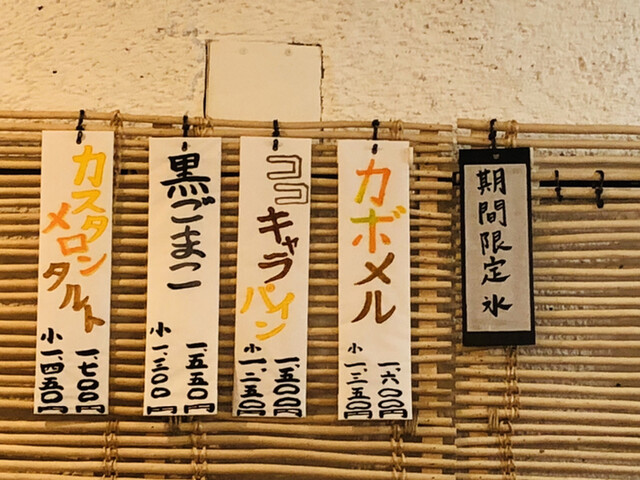 期間限定氷
カボメル
一、六〇〇円
小一、三五〇円
ココキャラパイン
一、五〇〇円
小一、二五〇円
黒ごまこ
一、五五〇円
小一、三〇〇円
カスタン
メロン
タルト
一、七〇〇円
小一、四五〇円